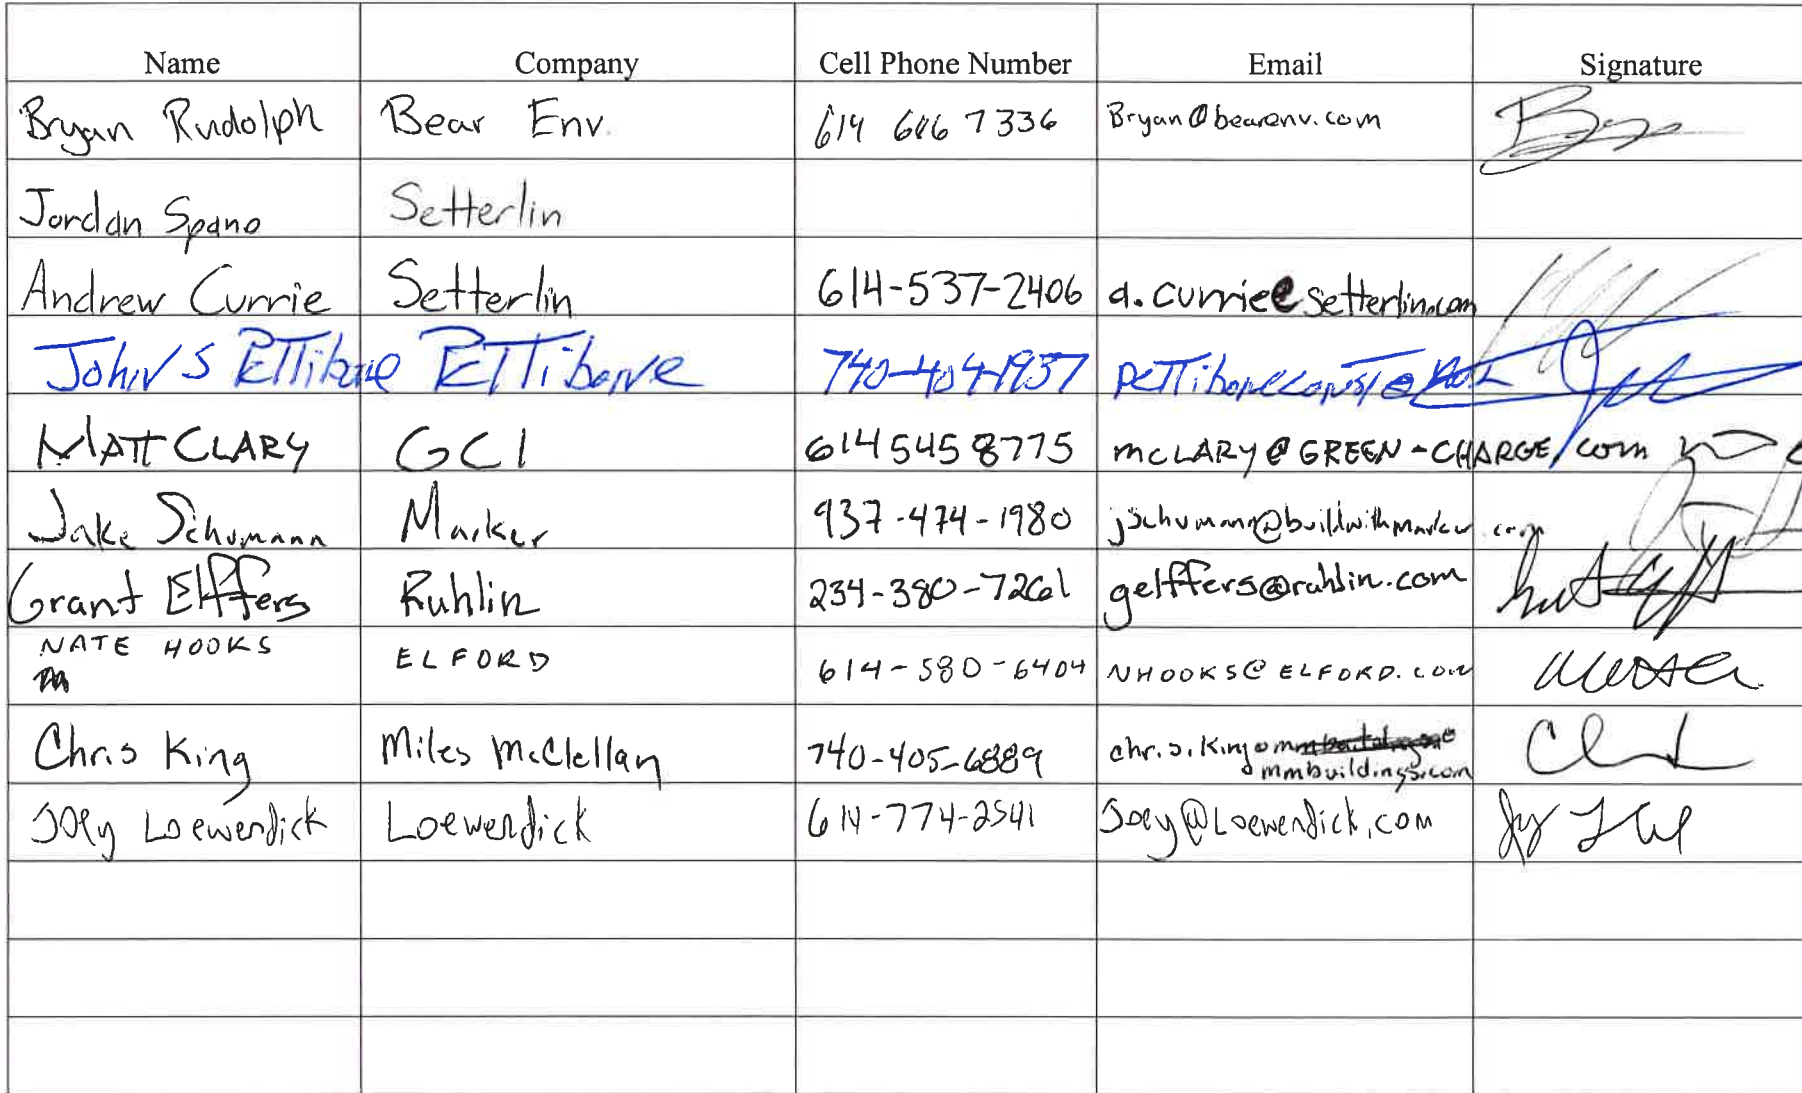 Name Company Cell Phone Number Email Signature
Bryan Rudolph Bear Env. 614 606 7336 Bryan@bearenv.com
Jordan Spano Setterlin
Andrew Currie Setterlin 614-537-2406 a.currie@setterlin.com
John S Pettibone Pettibone 740-404-1937 pettiboneconst@aol
MATT CLARY GCI 614 545 8775 mcLARY@GREEN-CHARGE.com
Jake Schumann Marker 937-474-1980 jschumann@buildwithmarker.com
Grant Elffers Ruhlin 234-380-7261 gelffers@ruhlin.com
NATE HOOKS ELFORD 614-580-6404 NHOOKS@ELFORD.COM
Chris King Miles McClellan 740-405-6889 chris.king@
mmbuildings.com
Joey Loewendick Loewendick 614-774-2541 Joey@Loewendick.com